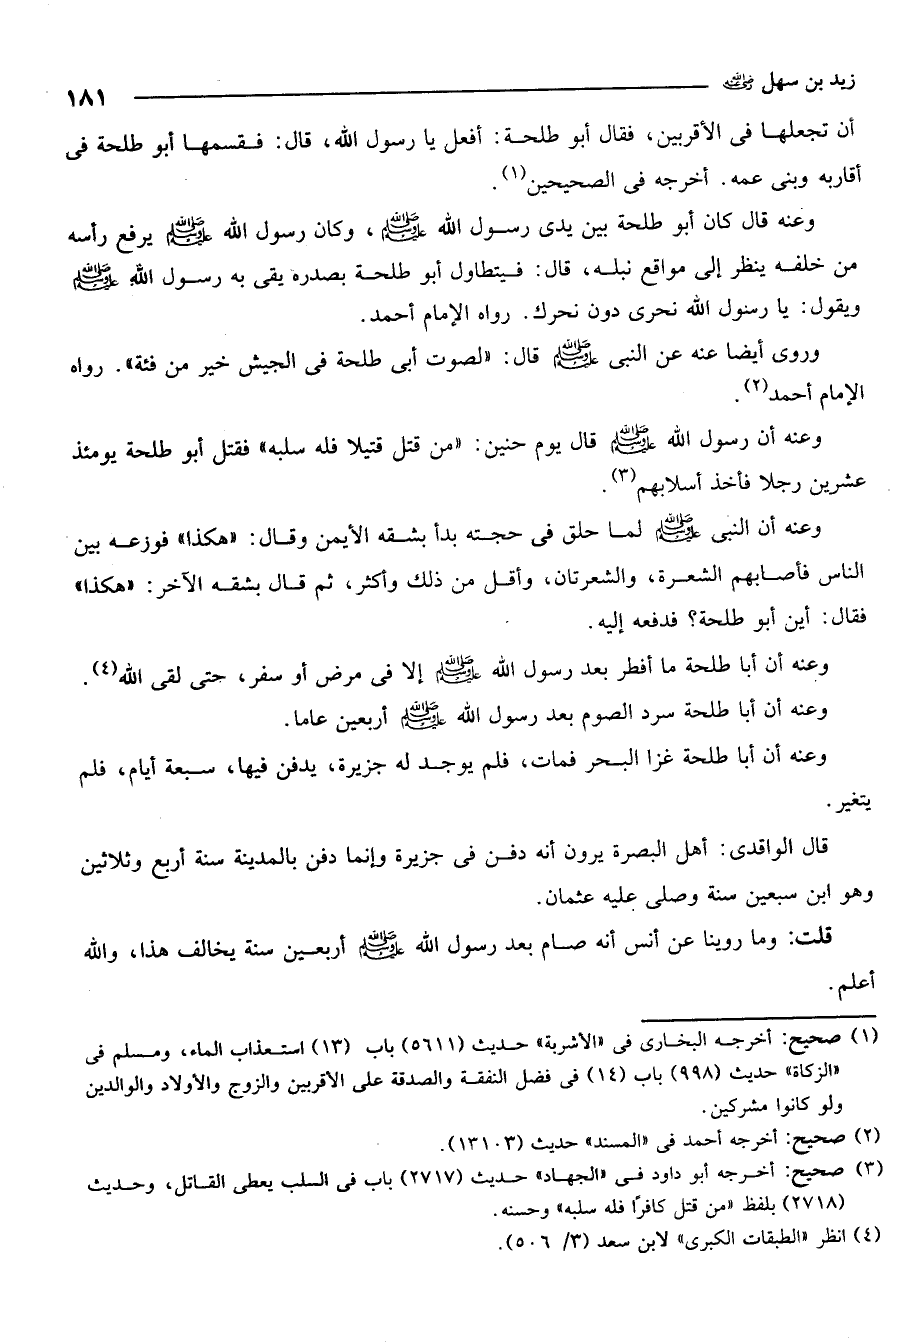 زيد بن سهل رضي الله عنه ١٨١
أن تجعلها فى الأقربين، فقال أبو طلحة: أفعل يا رسول الله، قال: فقسمها أبو طلحة فى
أقاربه وبنى عمه. أخرجه فى الصحيحين(١).
وعنه قال كان أبو طلحة بين يدى رسول الله ﷺ، وكان رسول الله ﷺ يرفع رأسه
من خلفه ينظر إلى مواقع نبله، قال: فيتطاول أبو طلحة بصدره يقى به رسول الله ﷺ
ويقول: يا رسول الله نحرى دون نحرك. رواه الإمام أحمد.
وروى أيضا عنه عن النبى ﷺ قال: «لصوت أبى طلحة فى الجيش خير من فئة». رواه
الإمام أحمد(٢).
وعنه أن رسول الله ﷺ قال يوم حنين: «من قتل قتيلا فله سلبه» فقتل أبو طلحة يومئذ
عشرين رجلا فأخذ أسلابهم(٣).
وعنه أن النبى ﷺ لما حلق فى حجته بدأ بشقه الأيمن وقال: «هكذا» فوزعه بين
الناس فأصابهم الشعرة، والشعرتان، وأقل من ذلك وأكثر، ثم قال بشقه الآخر: «هكذا»
فقال: أين أبو طلحة؟ فدفعه إليه.
وعنه أن أبا طلحة ما أفطر بعد رسول الله ﷺ إلا فى مرض أو سفر، حتى لقى الله(٤).
وعنه أن أبا طلحة سرد الصوم بعد رسول الله ﷺ أربعين عاما.
وعنه أن أبا طلحة غزا البحر فمات، فلم يوجد له جزيرة، يدفن فيها، سبعة أيام، فلم
يتغير.
قال الواقدى: أهل البصرة يرون أنه دفن فى جزيرة وإنما دفن بالمدينة سنة أربع وثلاثين
وهو ابن سبعين سنة وصلى عليه عثمان.
قلت: وما روينا عن أنس أنه صام بعد رسول الله ﷺ أربعين سنة يخالف هذا، والله
أعلم.
(١) صحيح: أخرجه البخارى فى «الأشربة» حديث (٥٦١١) باب (١٣) استعذاب الماء، ومسلم فى
«الزكاة» حديث (٩٩٨) باب (١٤) فى فضل النفقة والصدقة على الأقربين والزوج والأولاد والوالدين
ولو كانوا مشركين.
(٢) صحيح: أخرجه أحمد فى «المسند» حديث (١٣١٠٣).
(٣) صحيح: أخرجه أبو داود فى «الجهاد» حديث (٢٧١٧) باب فى السلب يعطى القاتل، وحديث
(٢٧١٨) بلفظ «من قتل كافرًا فله سلبه» وحسنه.
(٤) انظر «الطبقات الكبرى» لابن سعد (٣/ ٥٠٦).